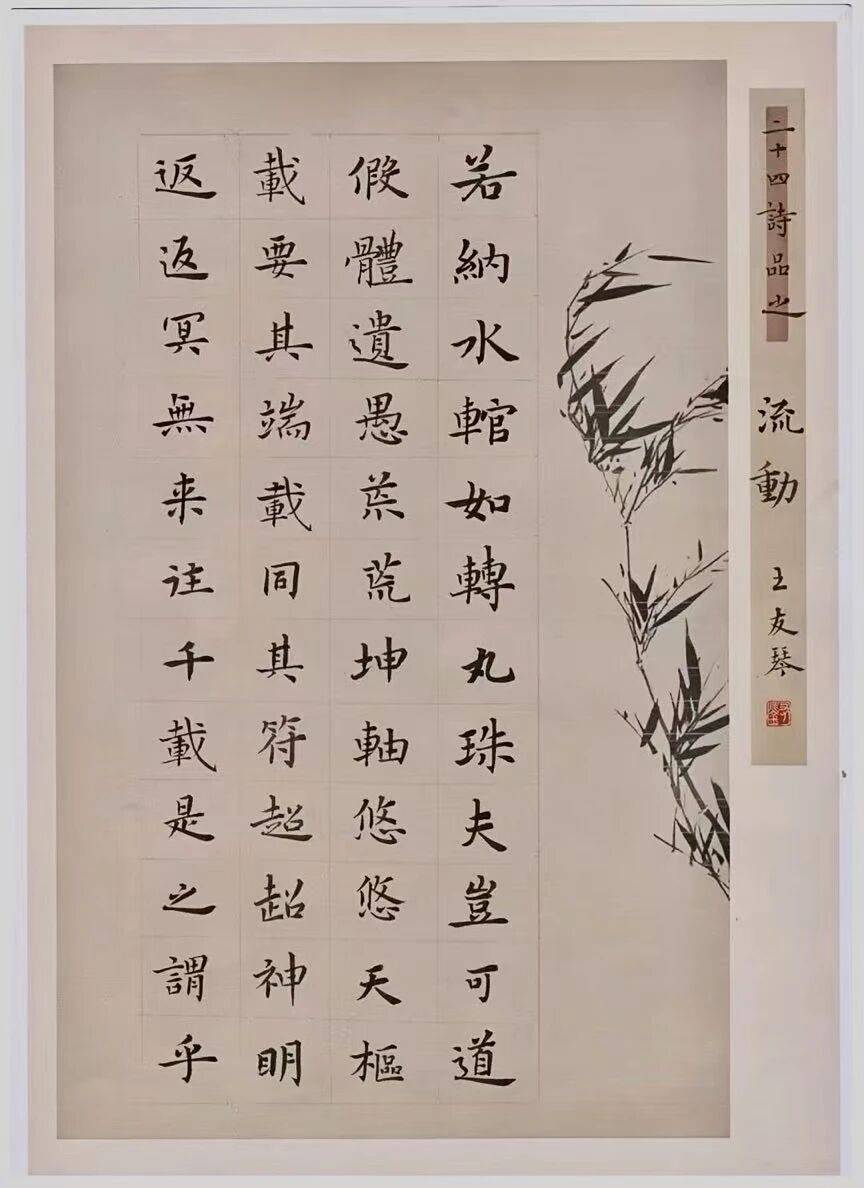 二十四詩品之 流動 王友琴
若納水輨如轉丸珠夫豈可道
假體遺愚荒荒坤軸悠悠天樞
載要其端載同其符超超神明
返返冥無来往千載是之謂乎